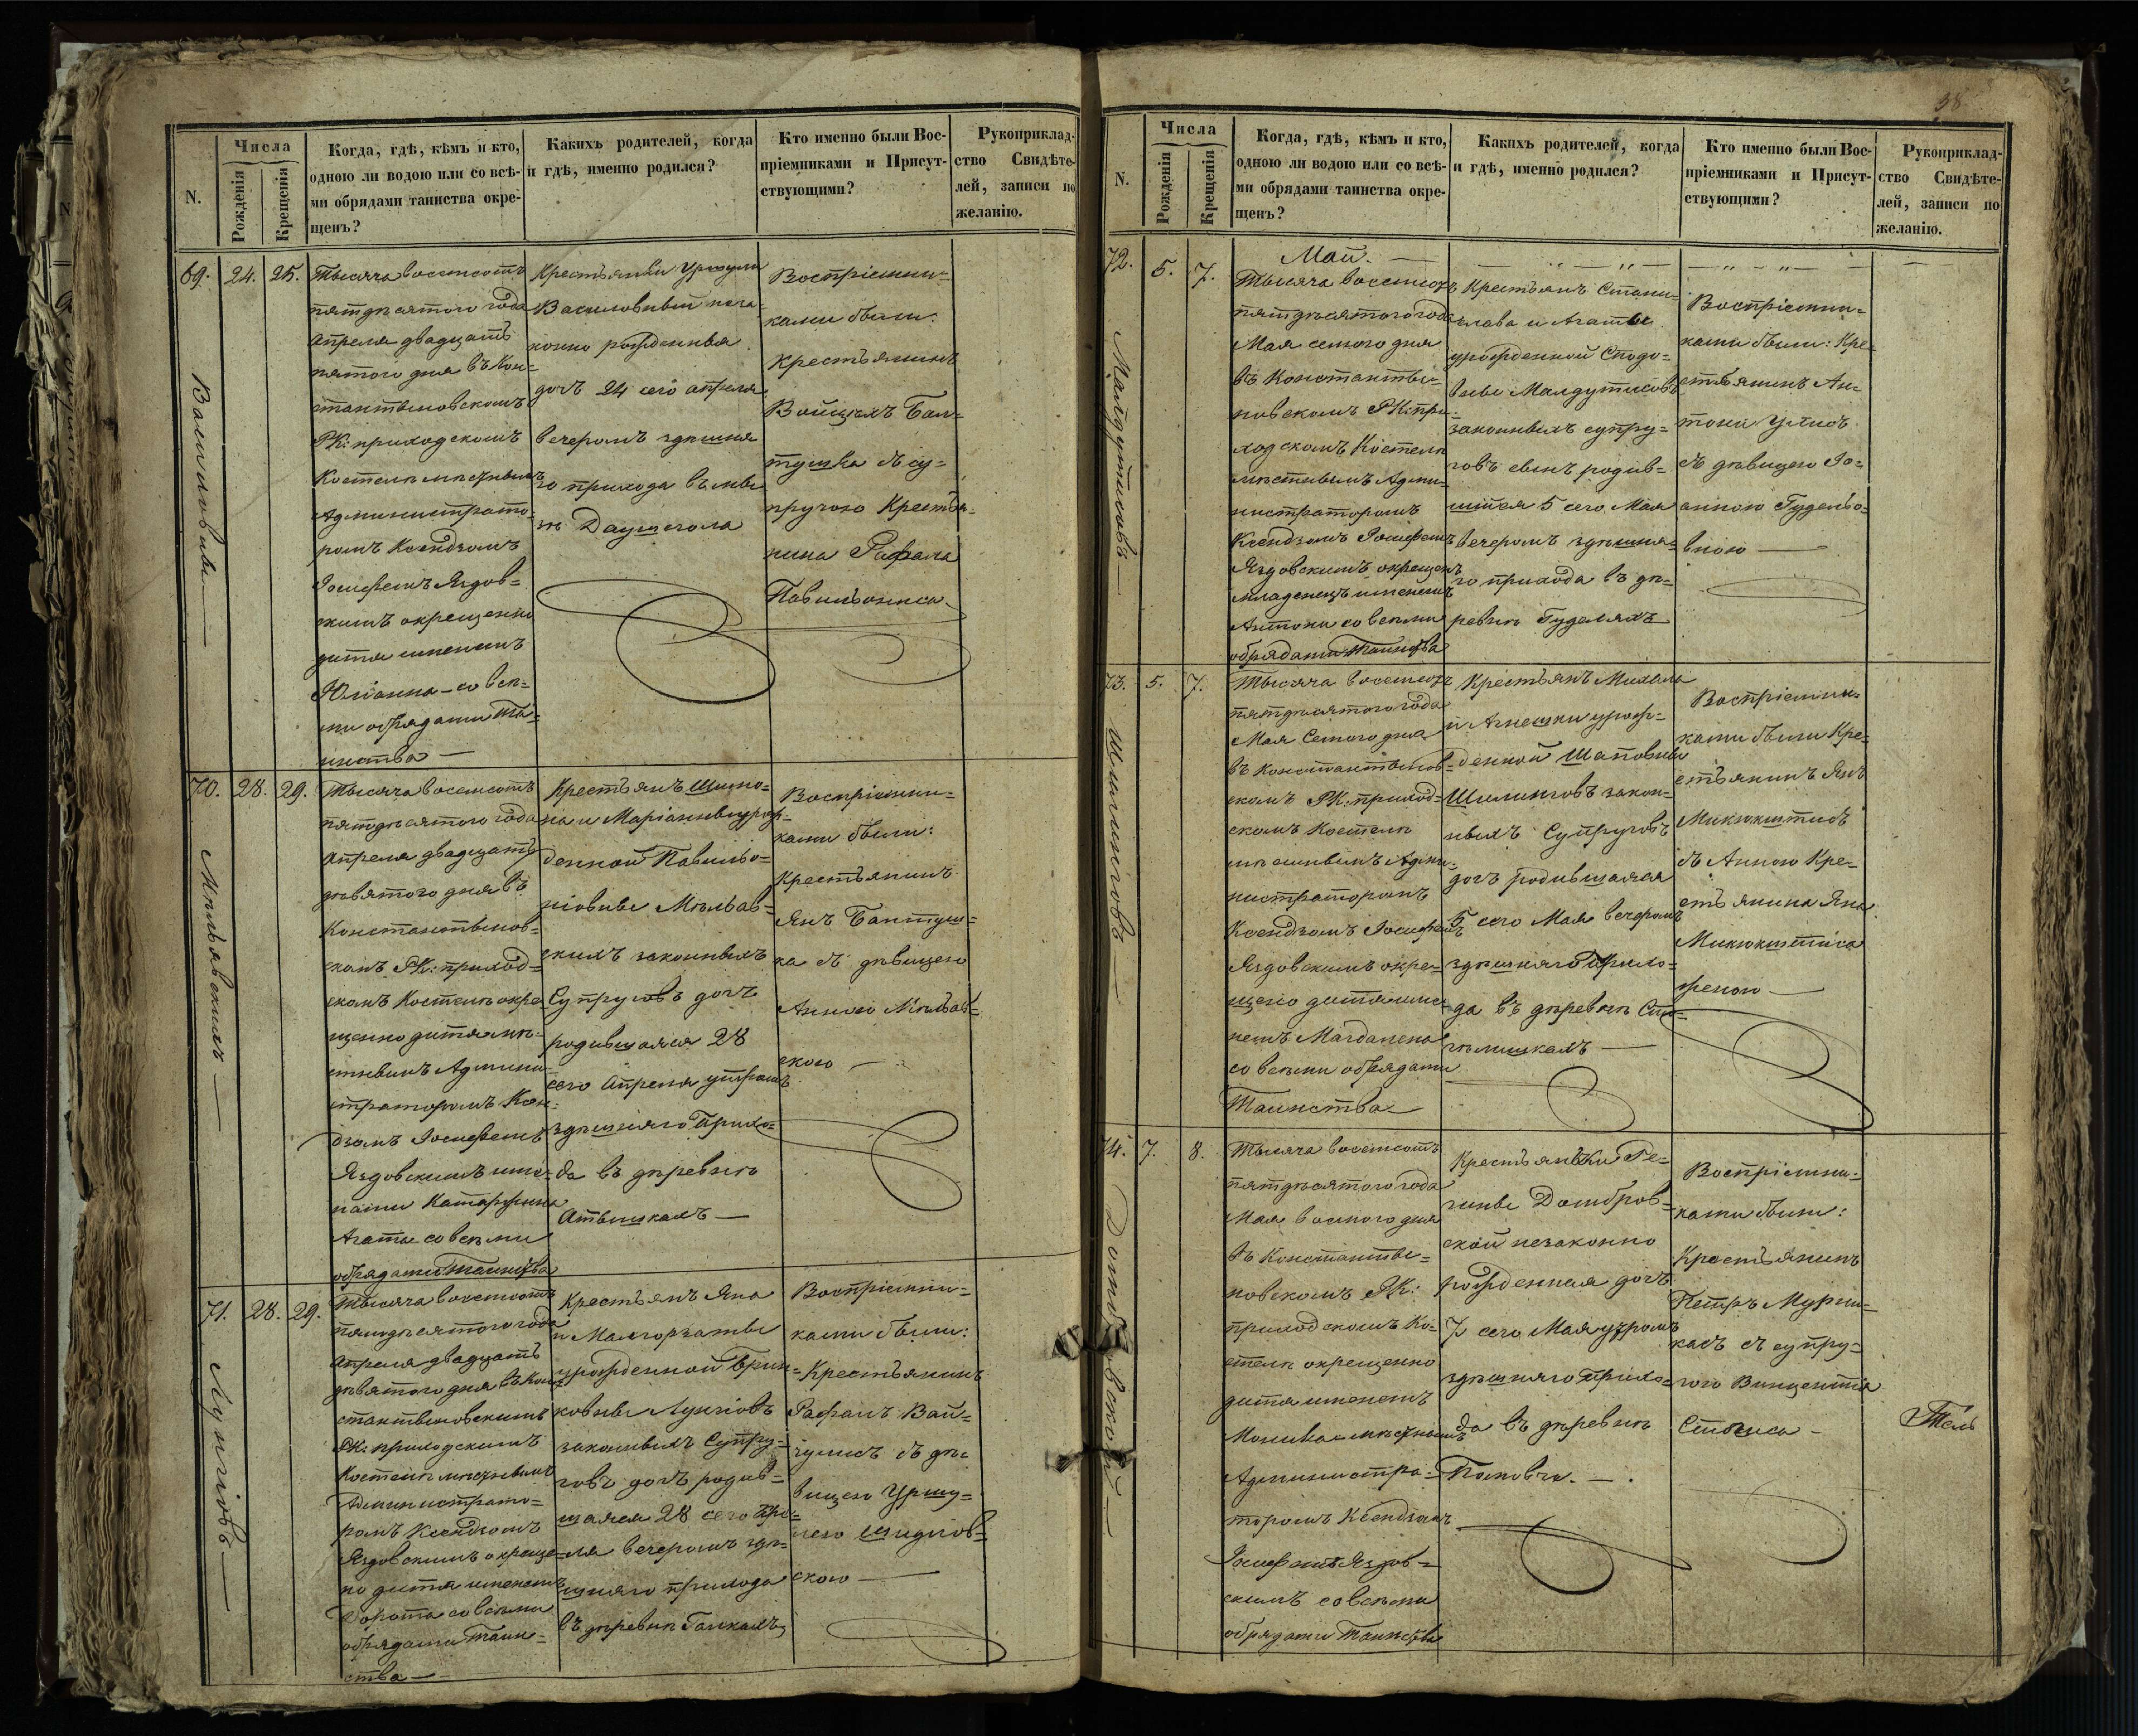 N.
Числа
Рожденія
Крещенія
Когда, гдѣ, кѣмъ и кто,
одною ли водою или со всѣ-
ми обрядами таинства окре-
щенъ?
Какихъ родителей, когда
и гдѣ, именно родился?
Кто именно были Вос-
пріемниками и Присут-
ствующими?
Рукоприклад-
ство Свидѣте-
лей, записи по
желанію.
69.
24.
25.
Тысяча восемсотъ
пятдѣсятого года
Апреля двадцатъ
пятого дня въ Кон-
стантыновскомъ
РК: приходскомъ
Костелѣ мѣстнымъ
Администрато-
ромъ Ксендзомъ
Іосифемъ Яздов=
скимъ окрещенно
дитя именемъ
Юліанна – со всѣ=
ми обрядами Та-
инства —
Крестьянки Уршули
неза-
конно рожденная
дочъ 24 сего апреля
вечеромъ здѣшня
го прихода въ
Воспріемни=
ками были:
Крестьянинъ
Войцѣхъ Бал=
тушка съ су=
пругою Крестья-
нина Рафала
Павильониса
70.
28.
29.
Тысяча восемсотъ
пятдѣсятого года
Апреля двадцатъ
дѣвятого дня въ
Константынов=
скомъ РК: приход=
скомъ Костелѣ окре
щенно дитя мѣ-
стнымъ Админи
страторомъ Ксен-
дзомъ Іосифемъ
Яздовскимъ име-
нами Катаржина
Агата со всѣми
обрядами Таинства
Крестьянъ Шимо=
на и Маріанны урож-
денной Павильо=
ніовны
скихъ законныхъ
Супруговъ дочъ
родившаяся 28
сего Апреля утромъ
здѣшняго Прихо=
да въ дѣревнѣ
Воспріемни=
ками были:
Крестьянинъ
Янъ Балтуш=
ка съ дѣвицею
Анною
скою —
71.
28.
29.
Тысяча восемсотъ
пятдѣсятого года
Апреля двадцатъ
дѣвятого дня въ Кон-
стантыновскимъ
РК: приходскимъ
Костелѣ мѣстнымъ
Администрато=
ромъ Ксендзомъ
Яздовскимъ окреще-
но дитя именемъ
Дорота со всѣми
обрядами Таин=
ства —
Крестьянъ Яна
и Малгоржаты
урожденной
законныхъ Супру-
говъ дочъ родив=
шаяся 28 сего Апре-
ля вечеромъ здѣ-
шняго прихода
въ дѣревнѣ
Воспріемни=
ками были:
Крестьянинъ
Рафалъ
съ дѣ-
вицею Уршу=
лею
скою —
38
N.
Числа
Рожденія
Крещенія
Когда, гдѣ, кѣмъ и кто,
одною ли водою или со всѣ-
ми обрядами таинства окре-
щенъ?
Какихъ родителей, когда
и гдѣ, именно родился?
Кто именно были Вос-
пріемниками и Присут-
ствующими?
Рукоприклад-
ство Свидѣте-
лей, записи по
желанію.
72.
5.
7.
Малдутисовъ
Май. —
Тысяча восемсотъ
пятдѣсятого года
Мая семого дня
въ Константы=
новскомъ РК: при
ходскомъ Костелѣ
мѣстнымъ Адми-
нистраторомъ
Ксендзомъ Іосифемъ
Яздовскимъ окрещенъ
младенецъ именемъ
Антони со всѣми
обрядами Таинства
Крестьянъ Стани=
слава и Агаты
урожденной Сподо=
вны Малдутисовъ
законныхъ супру=
говъ сынъ родив=
шийся 5 сего Мая
вечеромъ здѣшня=
го прихода въ дѣ=
ревнѣ Гуделяхъ
Воспріемни=
ками были: Кре=
стьянинъ Ан=
тони
съ дѣвицею Іо=
анною Гудельо=
вною —
73.
5.
7.
Шилинговъ
Тысяча восемсотъ
пятдѣсятого года
Мая Семого дня
въ Константынов=
скомъ РК: приход=
скомъ Костелѣ
мѣстнымъ Адми-
нистраторомъ
Ксендзомъ Іосифемъ
Яздовскимъ окре=
щено дитя име-
немъ Магдалена
со всѣми обрядами
Таинства
Крестьянъ Михала
и Агнешки урож=
денной Шаповны
Шилинговъ закон=
ныхъ Супруговъ
дочъ родившаяся
5 сего Мая вечеромъ
здѣшняго Прихо=
да въ дѣревнѣ
Воспріемни-
ками были Кре=
стьянинъ Янъ
Микшктисъ
съ Анною Кре=
стьянина Яна
женою —
74.
7.
8.
Тысяча восемсотъ
пятдѣсятого года
Мая восмого дня
въ Константы=
новскомъ РК:
приходскомъ Ко-
стелѣ окрещенно
дитя именемъ
Моника мѣстнымъ
Администра=
торомъ Ксендзомъ
Іосифемъ Яздов=
скимъ со всѣми
обрядами Таинства
Крестьянки Ре-
гины Домбров=
ской незаконно
рожденная дочъ
7 сего Мая утромъ
здѣшняго Прихо=
да въ дѣревнѣ
Воспріемни-
ками были:
Крестьянинъ
Петръ
съ супру=
гою Винцентія